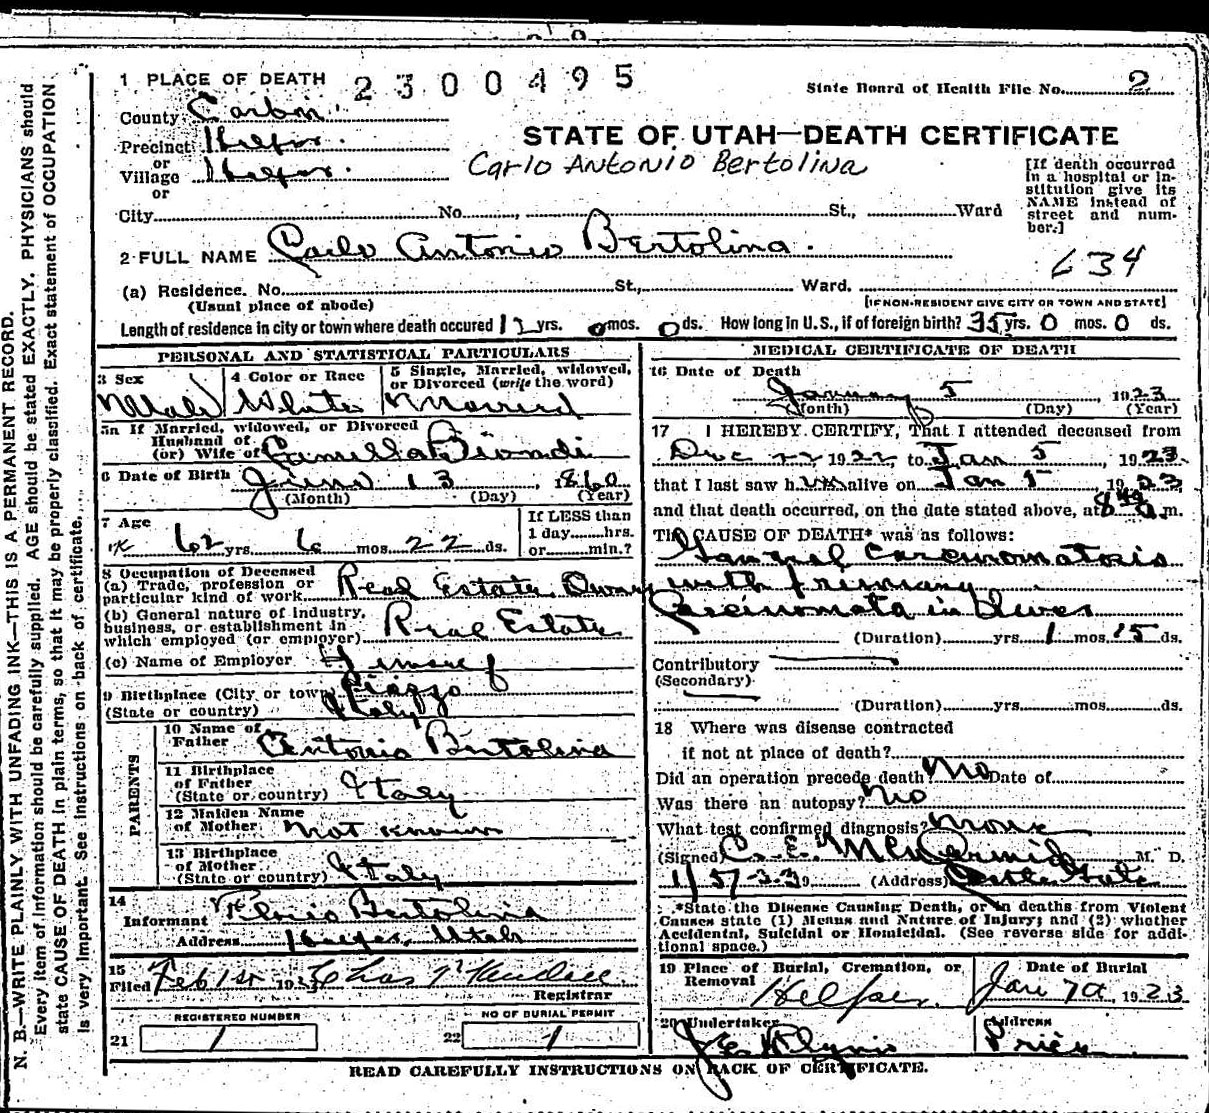 1 PLACE OF DEATH 2300495
State Board of Health File No. 2
County Carbon
Precinct Helper.
or
Village Helper.
or
STATE OF UTAH—DEATH CERTIFICATE
Carlo Antonio Bertolina
[If death occurred in a hospital or institution give its NAME instead of street and number.]
City No. St., Ward
2 FULL NAME Carlo Antonio Bertolina.
634
(a) Residence. No. St., Ward.
(Usual place of abode) [IF NON-RESIDENT GIVE CITY OR TOWN AND STATE]
Length of residence in city or town where death occured 12 yrs. 0 mos. 0 ds. How long in U.S., if of foreign birth? 35 yrs. 0 mos. 0 ds.
PERSONAL AND STATISTICAL PARTICULARS
3 Sex 4 Color or Race 5 Single, Married, widowed, or Divorced (write the word)
Male White Married
5a If Married, widowed, or Divorced
Husband of
(or) Wife of Camilla Biondi
6 Date of Birth June 13, 1860
(Month) (Day) (Year)
7 Age
62 yrs. 6 mos. 22 ds.
If LESS than
1 day......hrs.
or......min.?
8 Occupation of Deceased
(a) Trade, profession or
particular kind of work Real Estate Owner
(b) General nature of industry,
business, or establishment in
which employed (or employer) Real Estate
(c) Name of Employer Himself
9 Birthplace (City or town)
(State or country) Italy
PARENTS
10 Name of
Father Antonio Bertolina
11 Birthplace
of Father
(State or country) Italy
12 Maiden Name
of Mother not known
13 Birthplace
of Mother
(State or country) Italy
14
Informant Bertolina
Address Helper, Utah
15
Filed Feb 1st 1923
Registrar
REGISTERED NUMBER
21 1
NO OF BURIAL PERMIT
22 1
MEDICAL CERTIFICATE OF DEATH
16 Date of Death
January 5 1923
(Month) (Day) (Year)
17 I HEREBY CERTIFY, That I attended deceased from
Dec 22 1922, to Jan 5, 1923
that I last saw him alive on Jan 5 1923,
and that death occurred, on the date stated above, at m.
The CAUSE OF DEATH* was as follows:
General Carcinomatosis
with primary
Carcinomata in Liver
(Duration) yrs. 1 mos. 15 ds.
Contributory
(Secondary)
(Duration) yrs. mos. ds.
18 Where was disease contracted
if not at place of death?
Did an operation precede death? No Date of
Was there an autopsy? No
What test confirmed diagnosis? None
(Signed) C. E. McDermid M. D.
(Address) Castle Gate
*State the Disease Causing Death, or in deaths from Violent
Causes state (1) Means and Nature of Injury; and (2) whether
Accidental, Suicidal or Homicidal. (See reverse side for additional space.)
19 Place of Burial, Cremation, or Removal Date of Burial
Helper. Jan 7th, 1923
20 Undertaker Address
J. E. Flynn Price
READ CAREFULLY INSTRUCTIONS ON BACK OF CERTIFICATE.
N. B.—WRITE PLAINLY WITH UNFADING INK—THIS IS A PERMANENT RECORD.
Every item of information should be carefully supplied. AGE should be stated EXACTLY. PHYSICIANS should
state CAUSE OF DEATH in plain terms, so that it may be properly classified. Exact statement of OCCUPATION
is very important. See instructions on back of certificate.